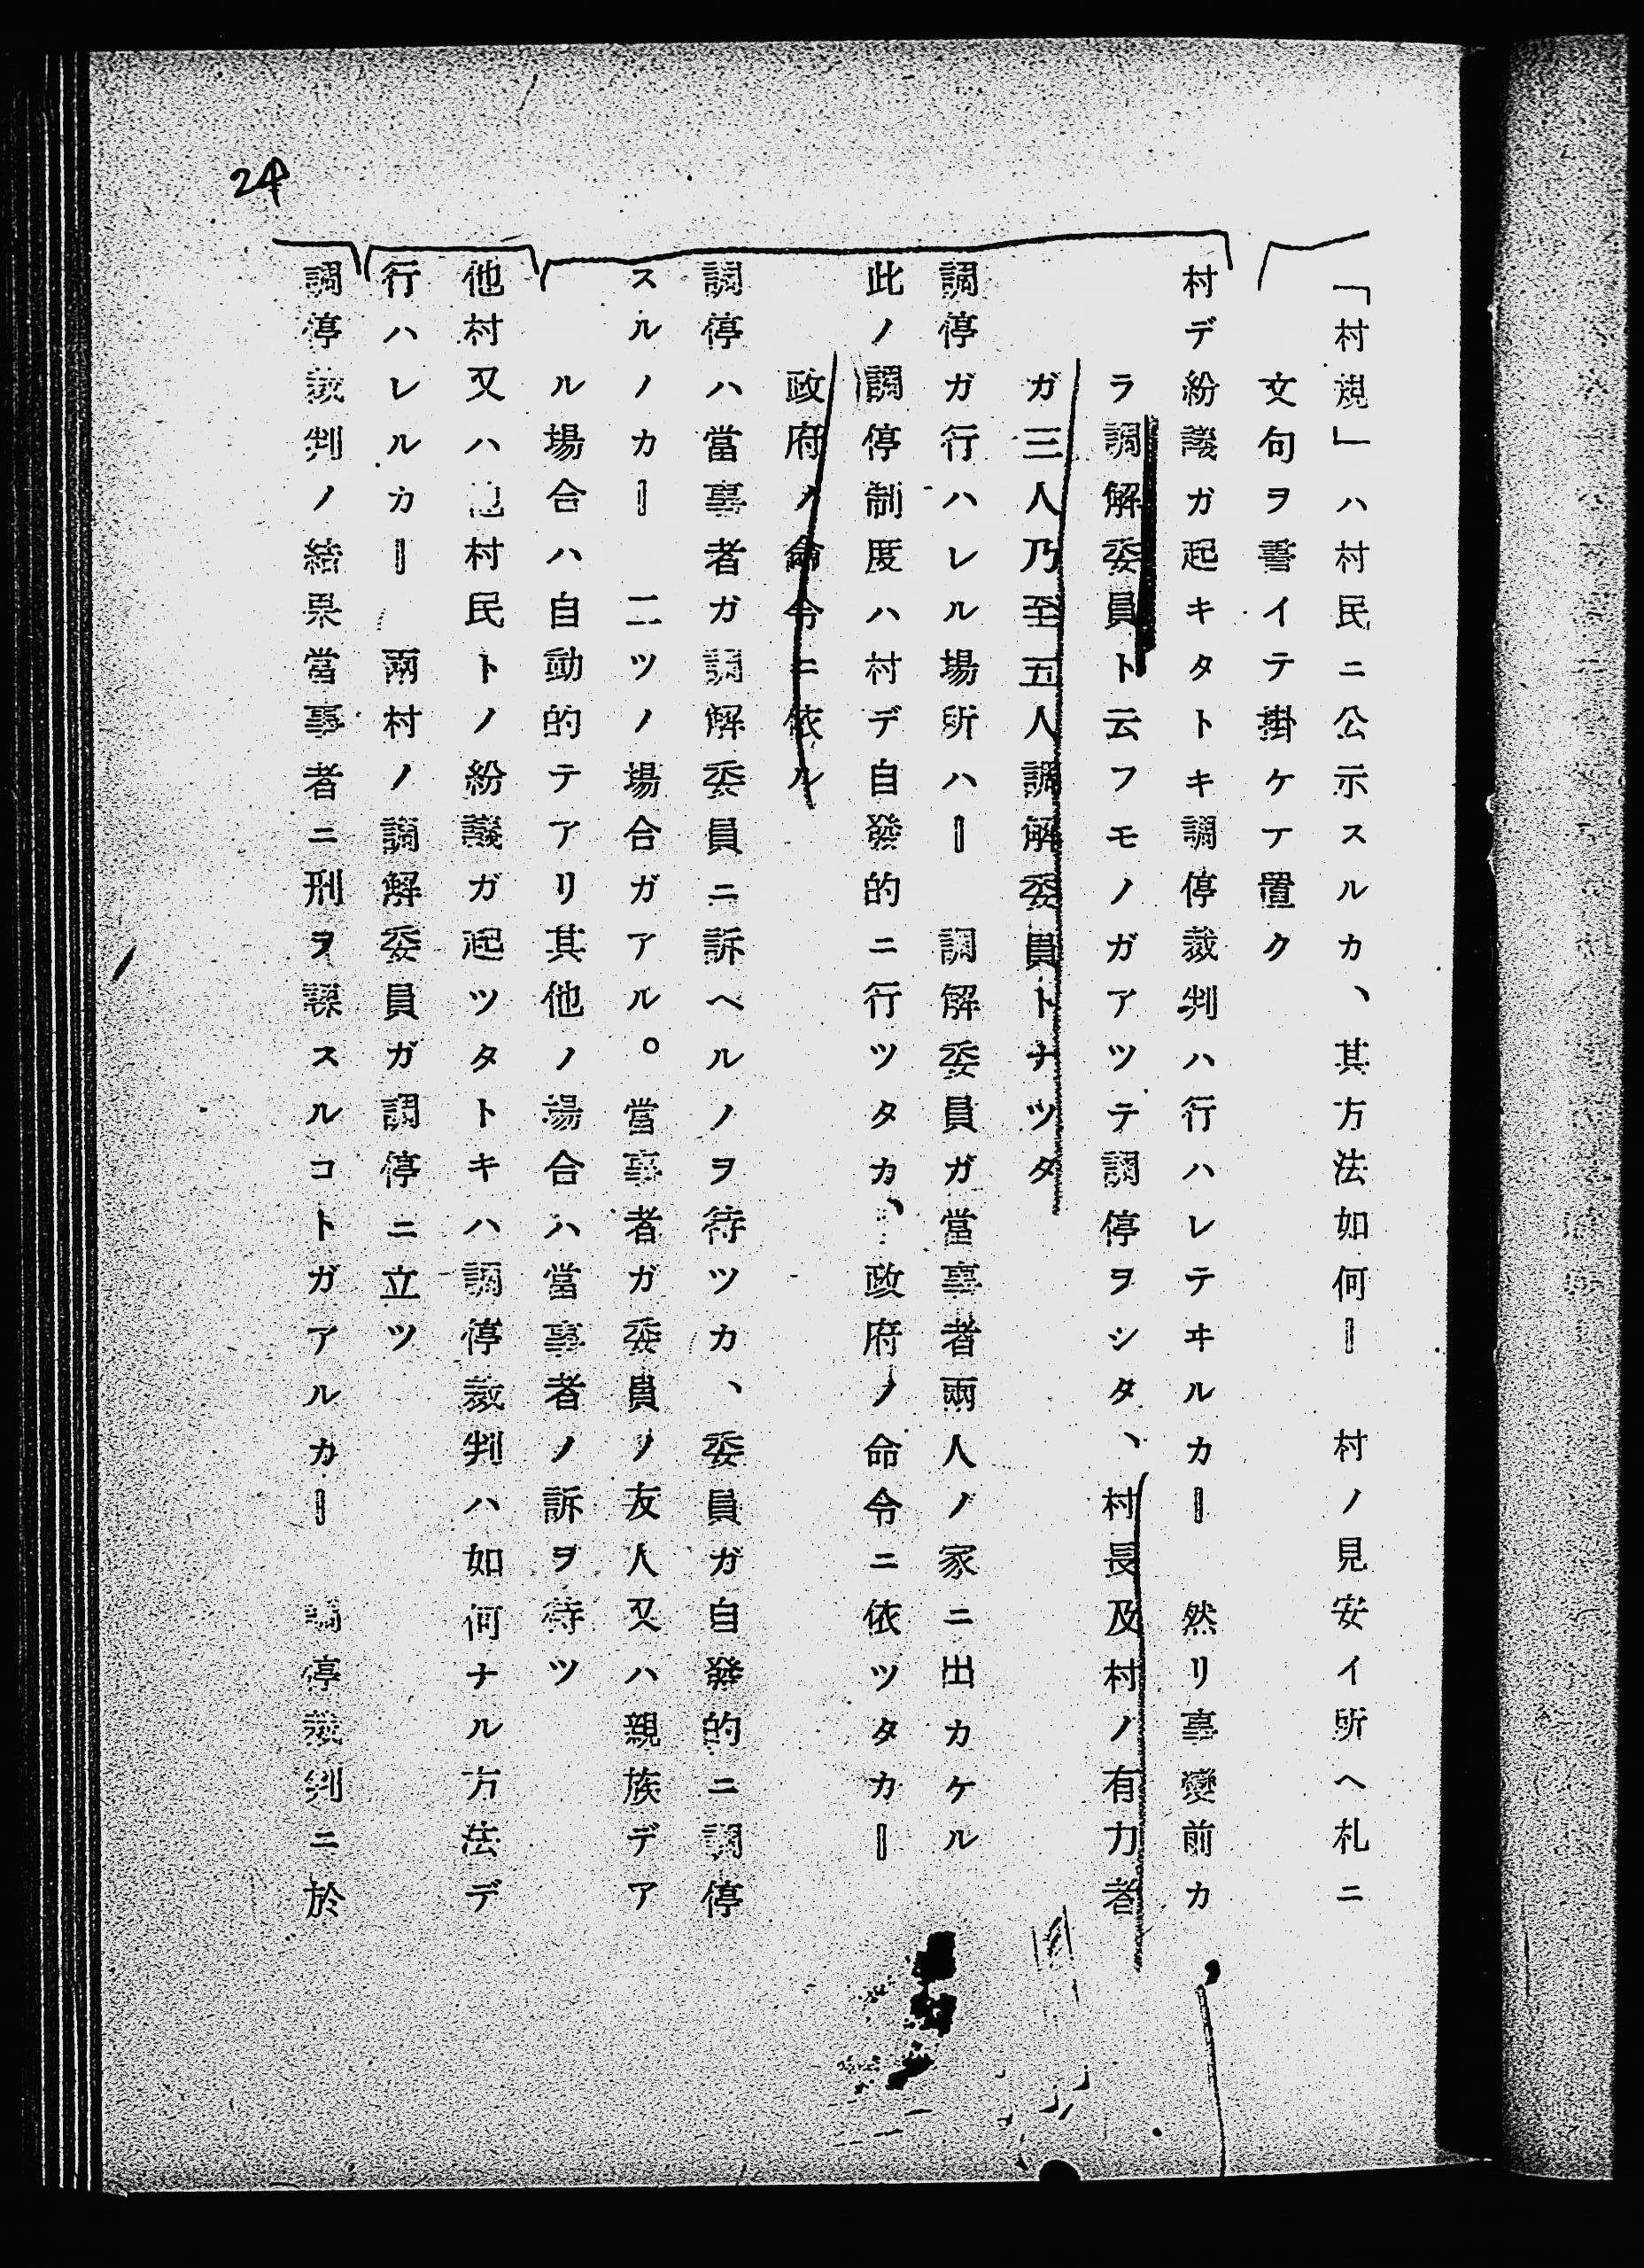 24
「村規」ハ村民ニ公示スルカ、其方法如何ー　村ノ見安イ所ヘ札ニ
文句ヲ書イテ掛ケテ置ク
村デ紛議ガ起キタトキ調停裁判ハ行ハレテヰルカー　然リ事變前カ
ラ調解委員ト云フモノガアツテ調停ヲシタ、村長及村ノ有力者
ガ三人乃至五人調解委員トナツタ
調停ガ行ハレル場所ハー　調解委員ガ當事者兩人ノ家ニ出カケル
此ノ調停制度ハ村デ自發的ニ行ツタカ、政府ノ命令ニ依ツタカー
政府ノ命令ニ依ル
調停ハ當事者ガ調解委員ニ訴ヘルノヲ待ツカ、委員ガ自發的ニ調停
スルノカー　二ツノ場合ガアル。當事者ガ委員ノ友人又ハ親族デア
ル場合ハ自動的テアリ其他ノ場合ハ當事者ノ訴ヲ待ツ
他村又ハ他村民トノ紛議ガ起ツタトキハ調停裁判ハ如何ナル方法デ
行ハレルカー　兩村ノ調解委員ガ調停ニ立ツ
調停裁判ノ結果當事者ニ刑ヲ課スルコトガアルカー　調停裁判ニ於